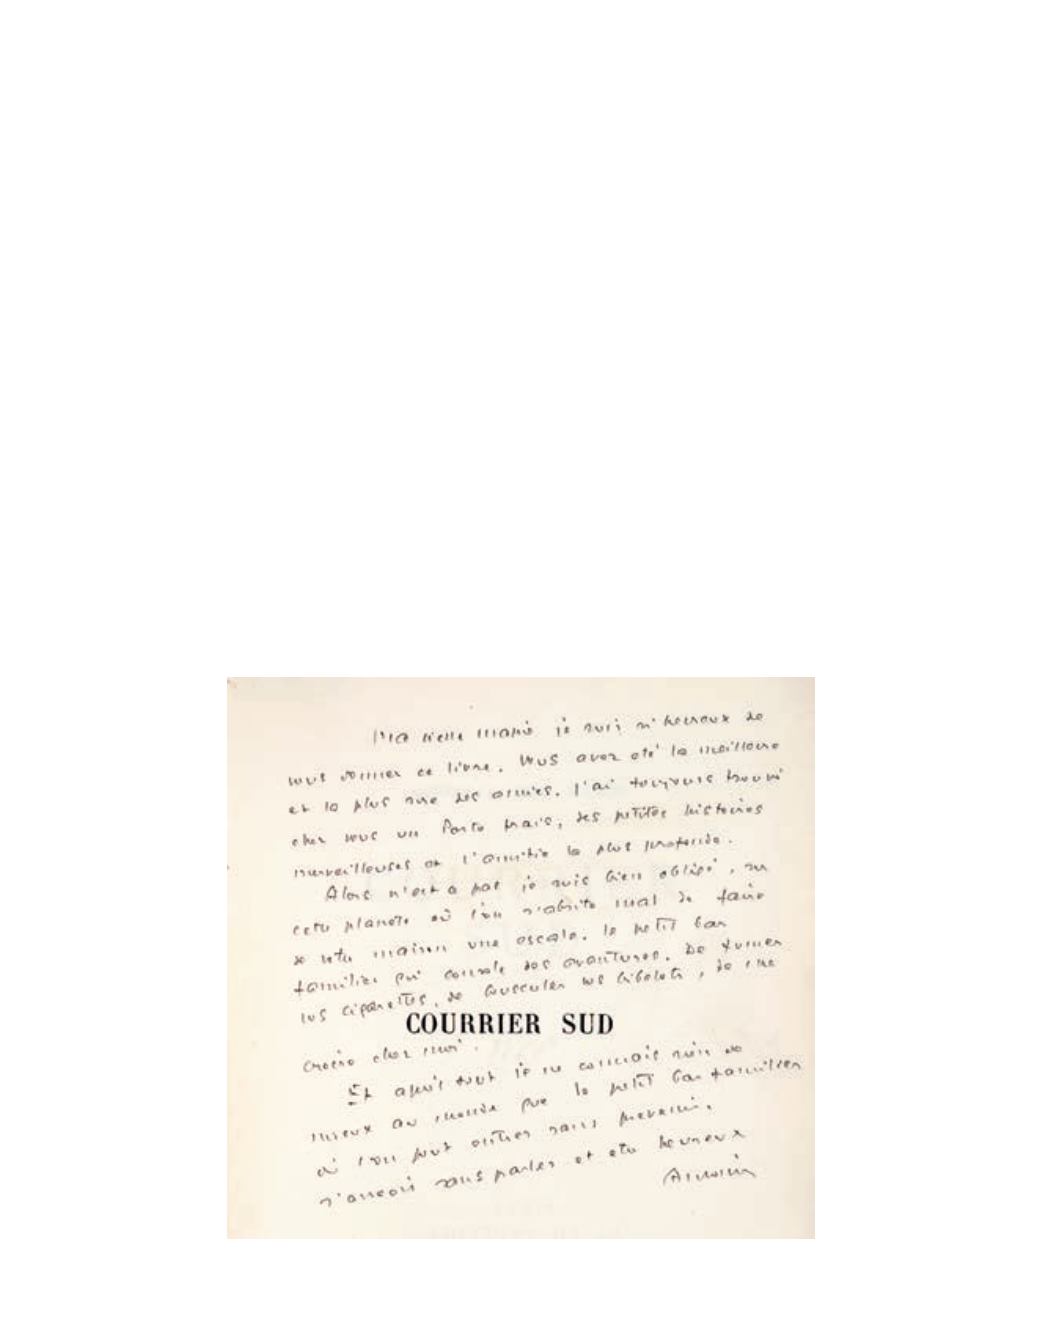 vieille Marie je suis si heureux de
vous donner ce livre. Vous avez été la meilleure
et la plus sure des amies. J'ai toujours trouvé
chez vous un Porto frais, des petites histoires
merveilleuses et l'amitié la plus profonde.
Alors n'est ce pas je suis bien obligé, sur
cette planète où l'on s'abrite mal de faire
de votre maison une escale. Le petit bar
familier qui console des aventures. De fumer
vos cigarettes, de bousculer vos bibelots, de me
COURRIER SUD
croire chez moi.
Et après tout je ne connais rien de
mieux au monde que le petit bar familier
où l'on peut entrer sans prevenir,
s'asseoir sans parler et etre heureux
Antoine